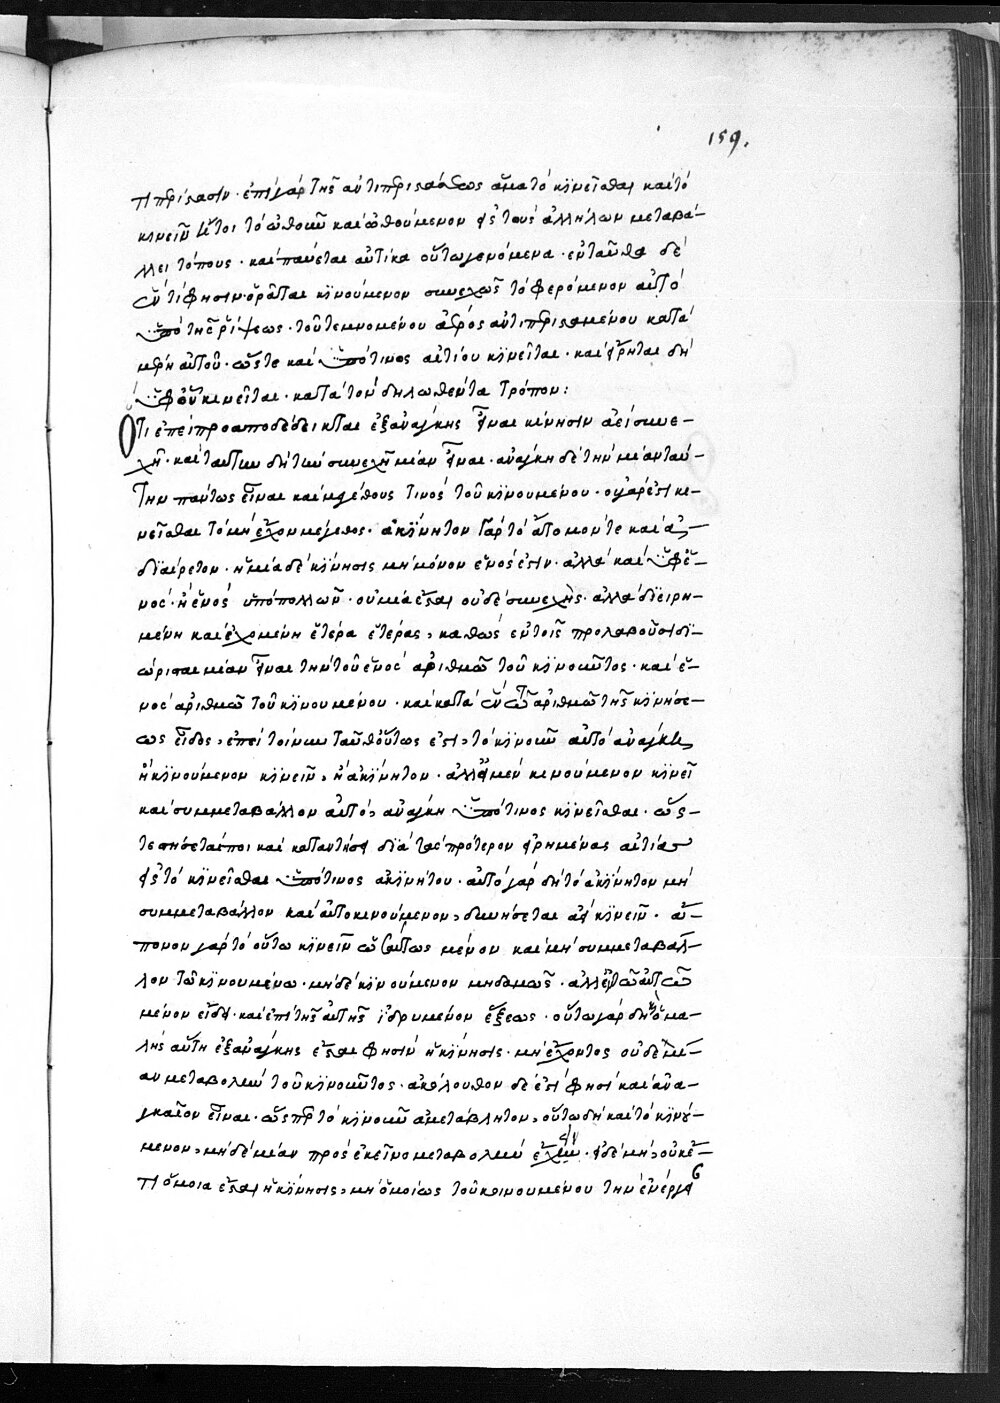 159.
τιπερίστασιν· ἐπὶ γὰρ τῆς ἀντιπεριστάσεως ἅμα τὸ κινεῖσθαι καὶ τὸ
κινεῖν ἤτοι τὸ ὠθοῦν καὶ ὠθούμενον εἰς τοὺς ἀλλήλων μεταβά-
λλει τόπους· καὶ παύεται αὐτίκα οὕτω γενόμενα· ἐνταῦθα δέ
φησιν ὁρᾶται κινούμενον συνεχῶς τὸ φερόμενον αὐτὸ
ὑπὸ τῆς ῥίψεως· τοῦ τεμνομένου ἀέρος ἀντιπεριισταμένου κατὰ
μέρη αὐτοῦ· ὥστε καὶ ὑπό τινος αἰτίου κινεῖται· καὶ εἴρηται δὴ
ὑφ' οὗ κινεῖται· κατὰ τὸν δηλωθέντα τρόπον:
Ὅτι ἐπεὶ προαποδέδεικται ἐξανάγκης εἶναι κίνησιν ἀεὶ συνε-
χῆ· καὶ ταύτην δὴ τὴν συνεχῆ μίαν εἶναι· ἀνάγκη δὲ τὴν μίαν ταύ-
την πάντως εἶναι καὶ μεγέθους τινὸς τοῦ κινουμένου· οὐ γάρ ἐστι κι-
νεῖσθαι τὸ μὴ ἔχον μέγεθος· ἀκίνητον γὰρ τὸ ἄτομόν τε καὶ ἀ-
διαίρετον· ἡ μία δὲ κίνησις μὴ μόνον ἑνός ἐστιν· ἀλλὰ καὶ ὑφ' ἑ-
νός· ἡ ἑνὸς ὑπὸ πολλῶν· οὐ μία ἔσται οὐδὲ συνεχής· ἀλλὰ διῃρη-
μένη καὶ ἐχομένη ἑτέρα ἑτέρας, καθὼς ἐν τοῖς προλαβοῦσι δι-
ώρισται μίαν εἶναι τὴν τοῦ ἑνὸς ἀριθμῶ τοῦ κινοῦντος· καὶ ἑ-
νὸς ἀριθμῶ τοῦ κινουμένου· καὶ κατὰ ἓν τῶ ἀριθμῶ τῆς κινήσε-
ως εἶδος, ἐπεὶ τοίνυν ταῦθ' οὕτως ἐστί, τὸ κινοῦν αὐτὸ ἀνάγκη
ἢ κινούμενον κινεῖν, ἢ ἀκίνητον· ἀλλ' εἰ μὲν κινούμενον κινεῖ
καὶ συμμεταβάλλον αὐτό, ἀνάγκη ὑπό τινος κινεῖσθαι· ὥσ-
τε στήσεταί ποι καὶ καταντήσει διὰ τὰς πρότερον εἰρημένας αἰτίας
εἰς τὸ κινεῖσθαι ὑπό τινος ἀκινήτου· αὐτὸ γὰρ δὴ τὸ ἀκίνητον μὴ
συμμεταβάλλον καὶ αὐτοκινούμενον, δυνήσεται ἀεὶ κινεῖν· ἄ-
πονον γὰρ τὸ οὕτω κινεῖν ὡσαύτως μένον καὶ μὴ συμμεταβάλ-
λον τῶ κινουμένω· μὴδὲ κινούμενον μηδαμῶς· ἀλλ' ἐν τῶ αὐτῶ
μένον εἴδει· καὶ ἐπὶ τῆς αὐτῆς ἱδρυμένον ἕξεως· οὕτω γὰρ δὴ ὁμα-
λὴς αὕτη ἐξανάγκης ἔσται φησὶν ἡ κίνησις· μὴ ἔχοντος οὐδεμί-
αν μεταβολὴν τοῦ κινοῦντος· ἀκόλουθον δέ ἐστί φησι καὶ ἀνα-
γκαῖον εἶναι· ὥσπερ τὸ κινοῦν ἀμετάβλητον, οὕτω δὴ καὶ τὸ κινού-
μενον, μὴδεμίαν πρὸς ἐκεῖνο μεταβολὴν ἔχειν· εἰ δὲ μή, οὐκέ-
τι ὁμοία ἔσται ἡ κίνησις, μὴ ὁμοίως τοῦ κινουμένου τὴν ἐνέργει